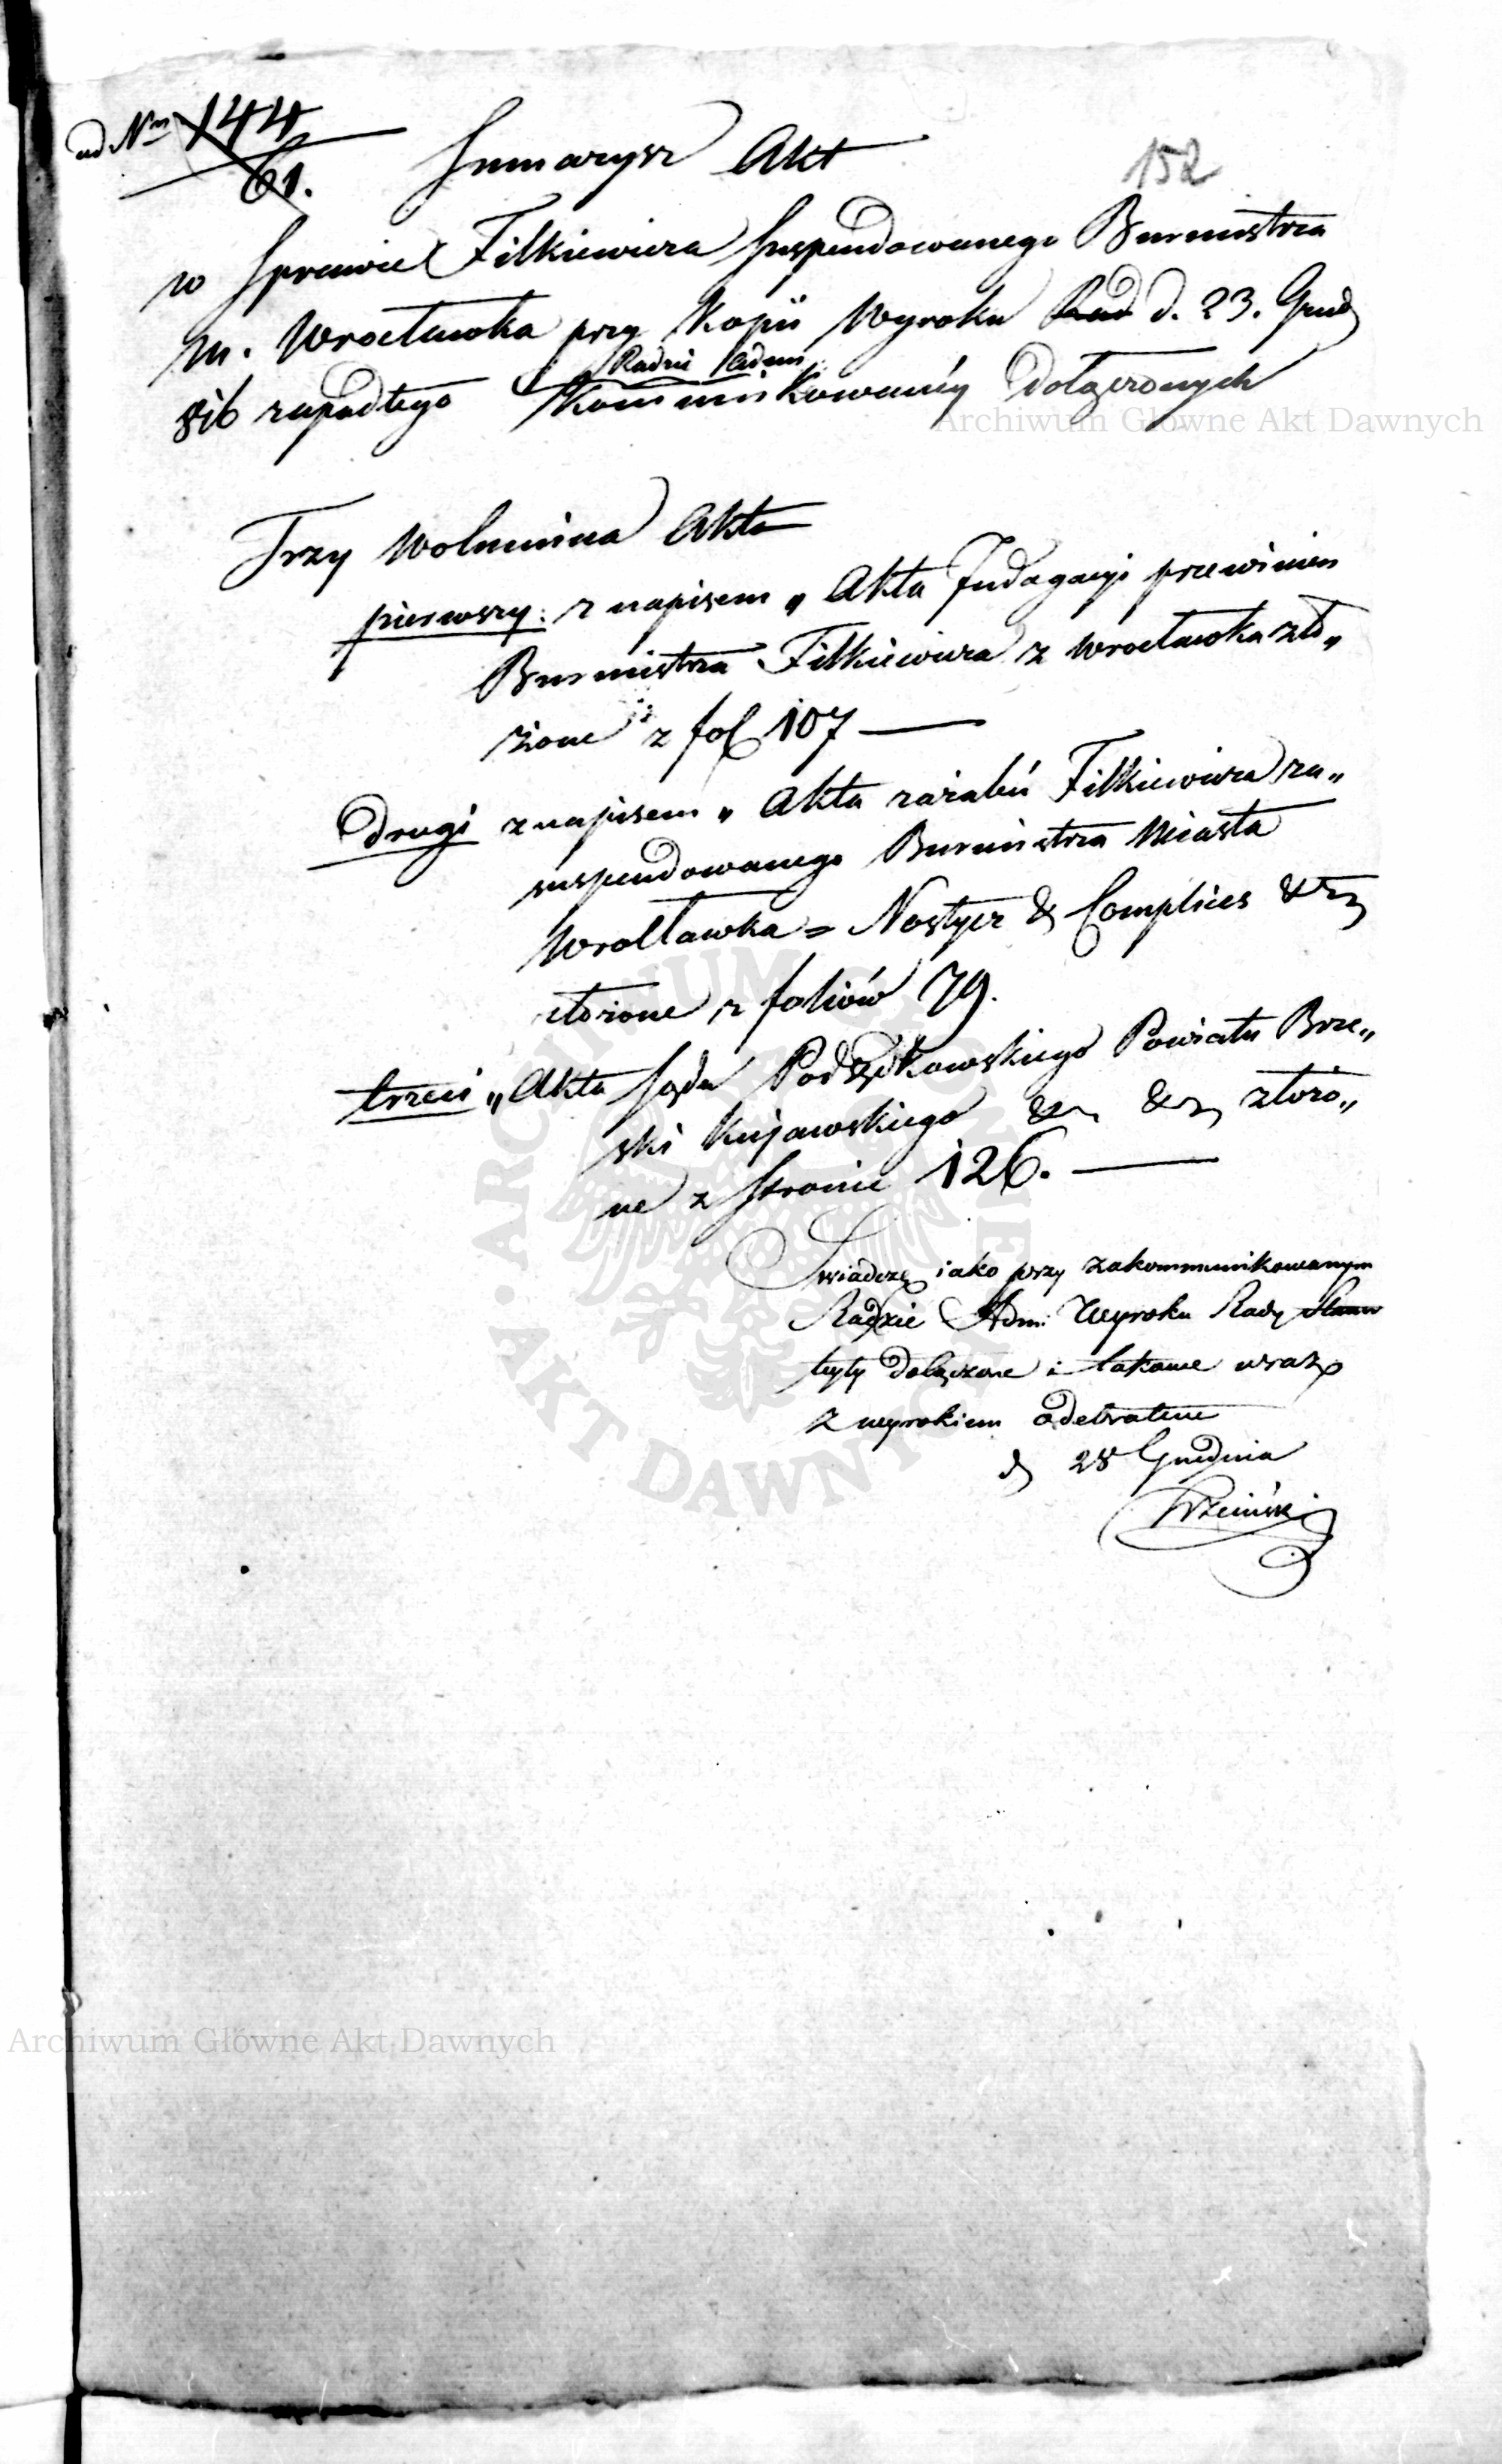 ad Nro 144
61.
152
Summarysz Akt
w Sprawie Filkiewicza Suspendowanego Burmistrza
m. Wrocławka przy Kopii Wyroku d. 23. Grud
816 zapadłego Radzie Adm: Kommunikowanéy dołączonych
Trzy Wolumina Akta
pierwszy: z napisem „ Akta Indagacyi przewinien
Burmistrza Filkiewicza z Wrocławka zło„
żone z fol 107
Drugi z napisem „ Akta zażaleń Filkiewicza za„
suspendowanego Burmistrza Miasta
Wrocławka = Nostycz & Complices &
złożone z foliów 79.
trzeci „ Akta Sądu Podsędkowskiego Powiatu Brze„
ski Kujawskiego & & złożo„
ne z Stronic 126.
Swiadczę iako przy zakommunikowanym
Radzie Adm: Wyroku Rady Stanu
były dołączone i takowe wraz
z wyrokiem odebrałem
d 28 Grudnia
Archiwum Główne Akt Dawnych
Archiwum Główne Akt Dawnych
ARCHIWUM GŁÓWNE AKT DAWNYCH